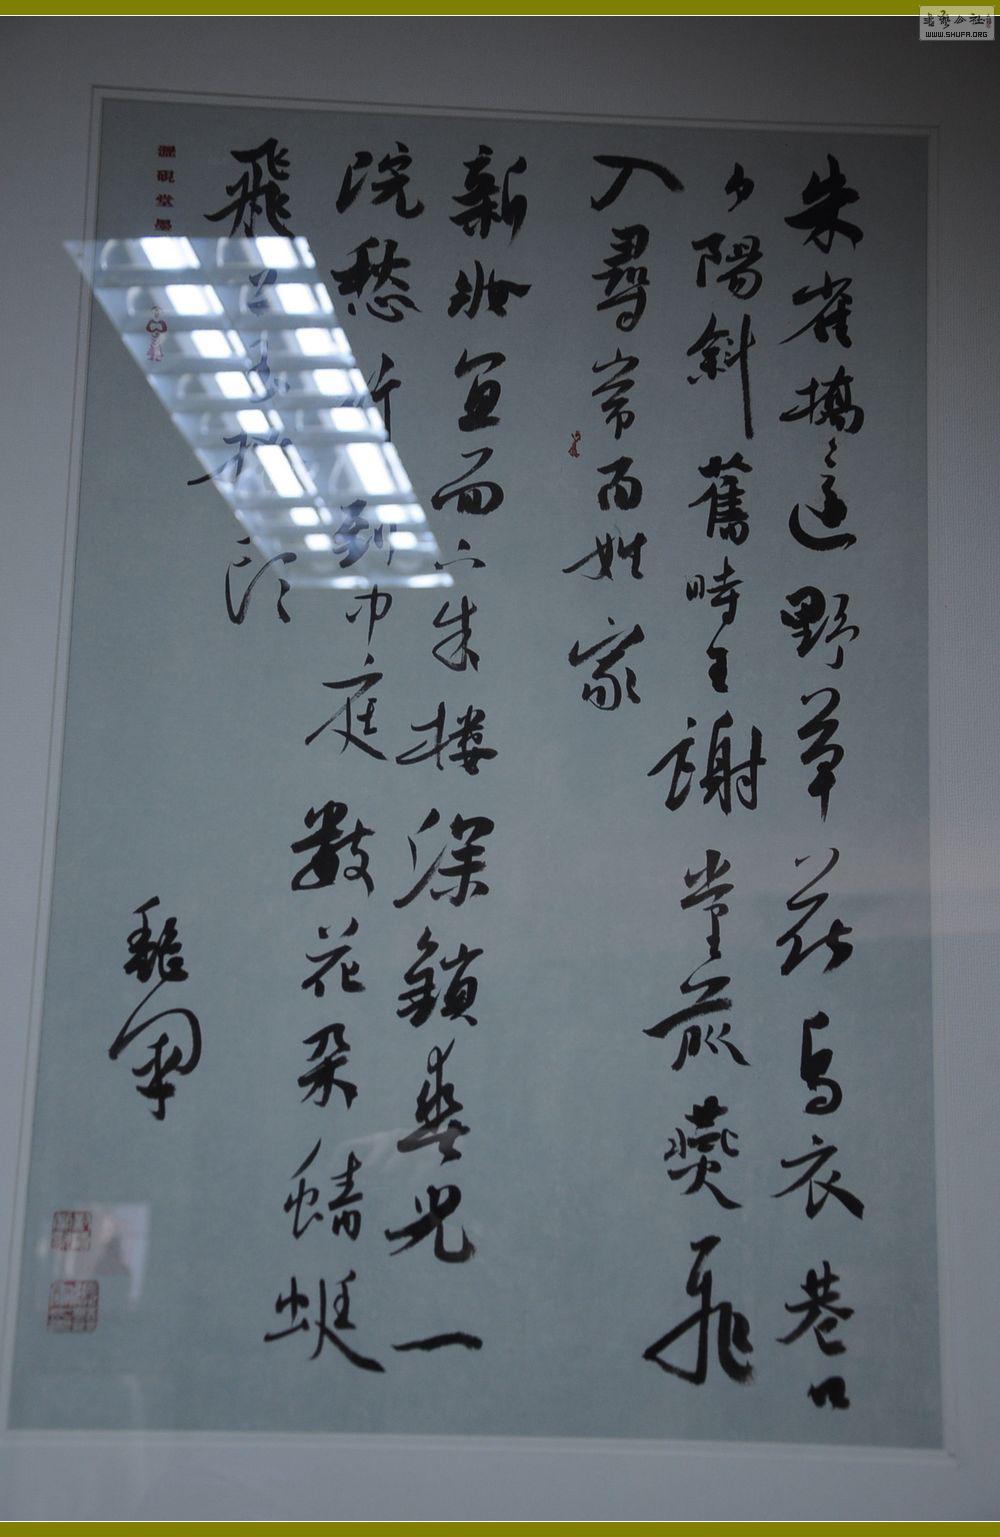 書藝公社
WWW.SHUFA.ORG
朱雀橋邊野草花烏衣巷口
夕陽斜舊時王謝堂前燕飛
入尋常百姓家
新妝宜面下朱樓深鎖春光一
院愁行到中庭數花朵蜻蜓
飛上玉搔頭
硯堂墨